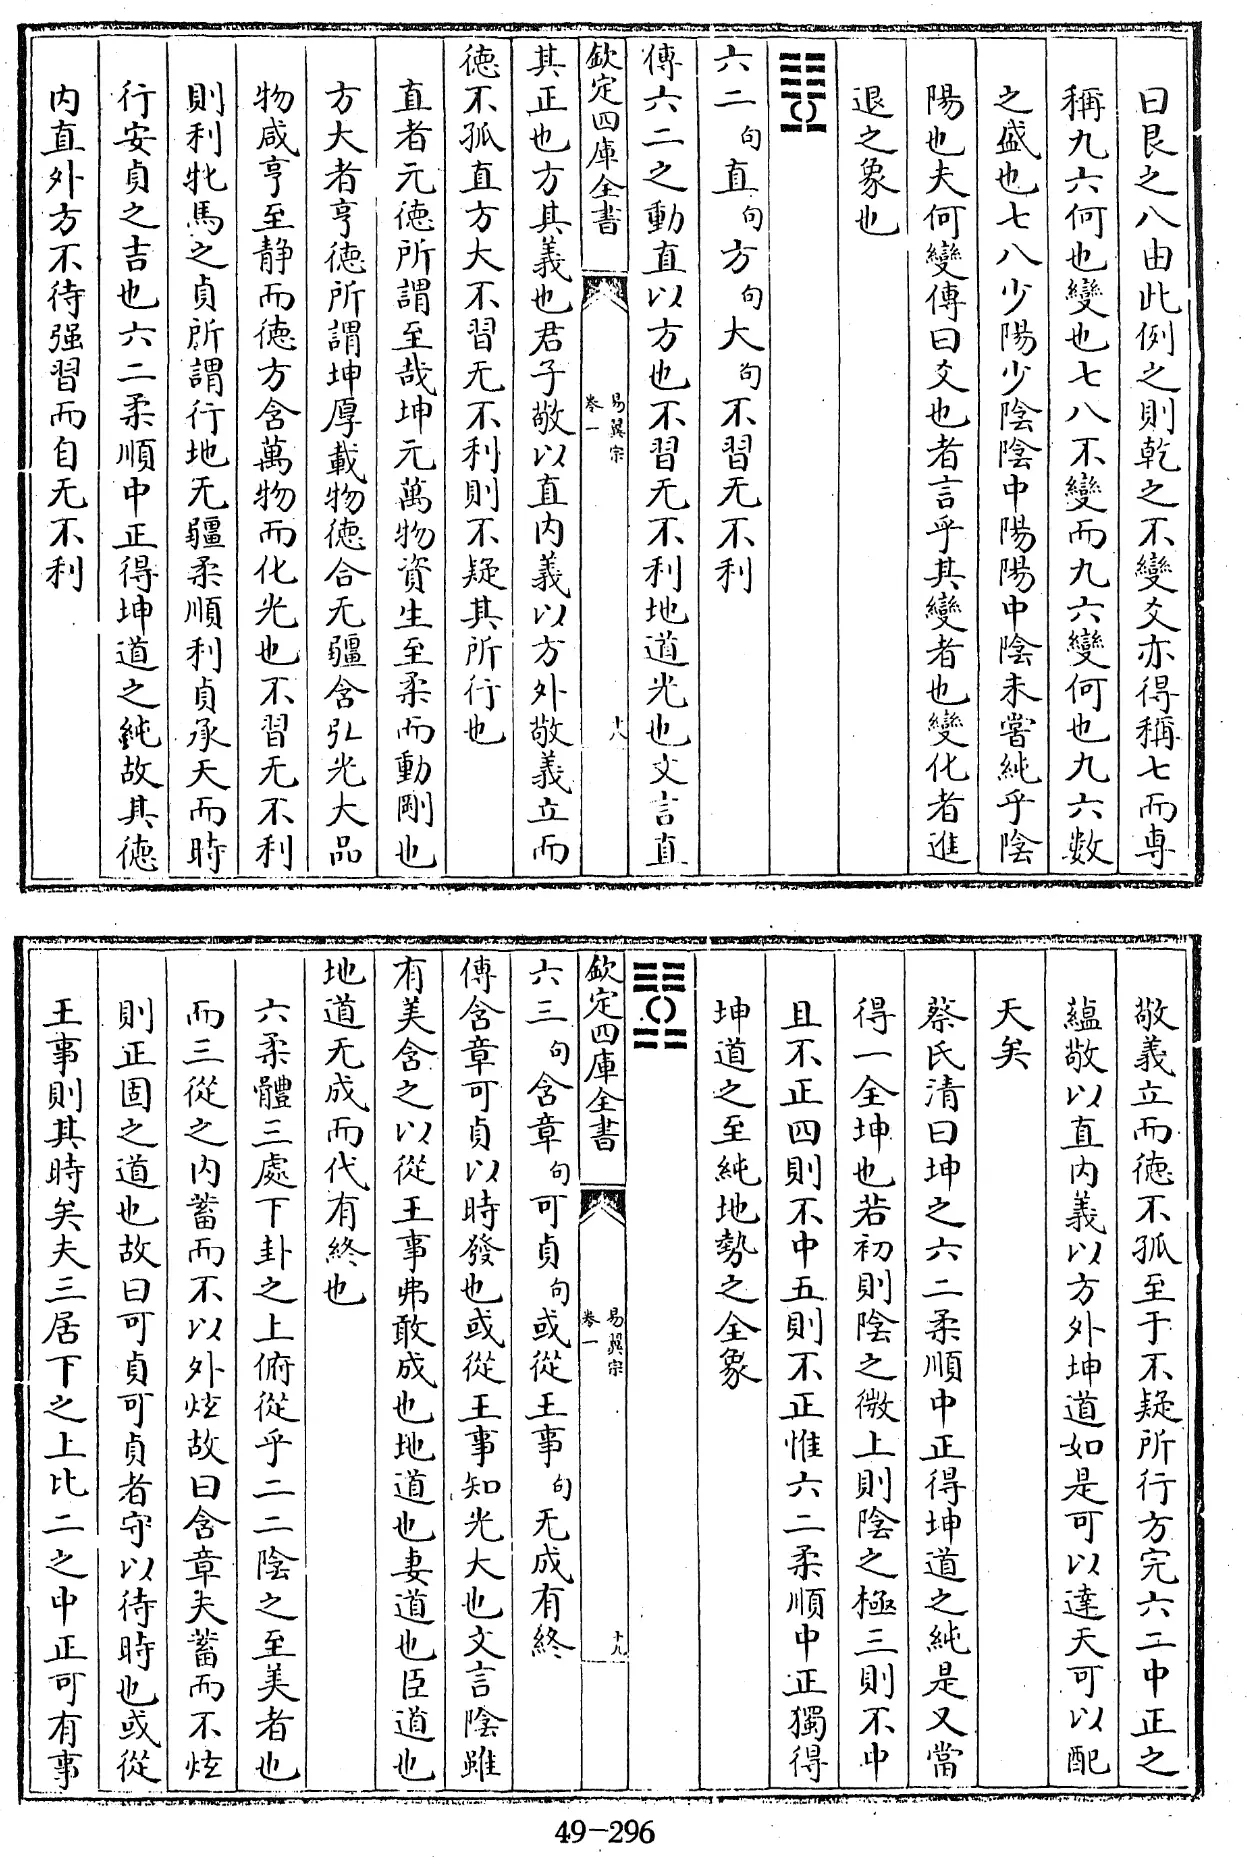 曰艮之八由此例之則乾之不變爻亦得稱七而専
稱九六何也變也七八不變而九六變何也九六數
之盛也七八少陽少陰陰中陽陽中陰未嘗純乎陰
陽也夫何變傳曰爻也者言乎其變者也變化者進
退之象也
六二句直句方句大句不習无不利
傳六二之動直以方也不習无不利地道光也文言直
欽定四庫全書
易翼宗
卷一
十八
其正也方其義也君子敬以直内義以方外敬義立而
徳不孤直方大不習无不利則不疑其所行也
直者元徳所謂至哉坤元萬物資生至柔而動剛也
方大者亨徳所謂坤厚載物徳合无疆含弘光大品
物咸亨至静而徳方含萬物而化光也不習无不利
則利牝馬之貞所謂行地无疆柔順利貞承天而時
行安貞之吉也六二柔順中正得坤道之純故其徳
内直外方不待强習而自无不利
敬義立而徳不孤至于不疑所行方完六二中正之
藴敬以直内義以方外坤道如是可以達天可以配
天矣
蔡氏清曰坤之六二柔順中正得坤道之純是又當
得一全坤也若初則陰之微上則陰之極三則不中
且不正四則不中五則不正惟六二柔順中正獨得
坤道之至純地勢之全象
欽定四庫全書
易翼宗
卷一
十九
六三句含章句可貞句或從王事句无成有終
傳含章可貞以時發也或從王事知光大也文言陰雖
有美含之以從王事弗敢成也地道也妻道也臣道也
地道无成而代有終也
六柔體三處下卦之上俯從乎二二陰之至美者也
而三從之内蓄而不以外炫故曰含章夫蓄而不炫
則正固之道也故曰可貞可貞者守以待時也或從
王事則其時矣夫三居下之上比二之中正可有事
49-296